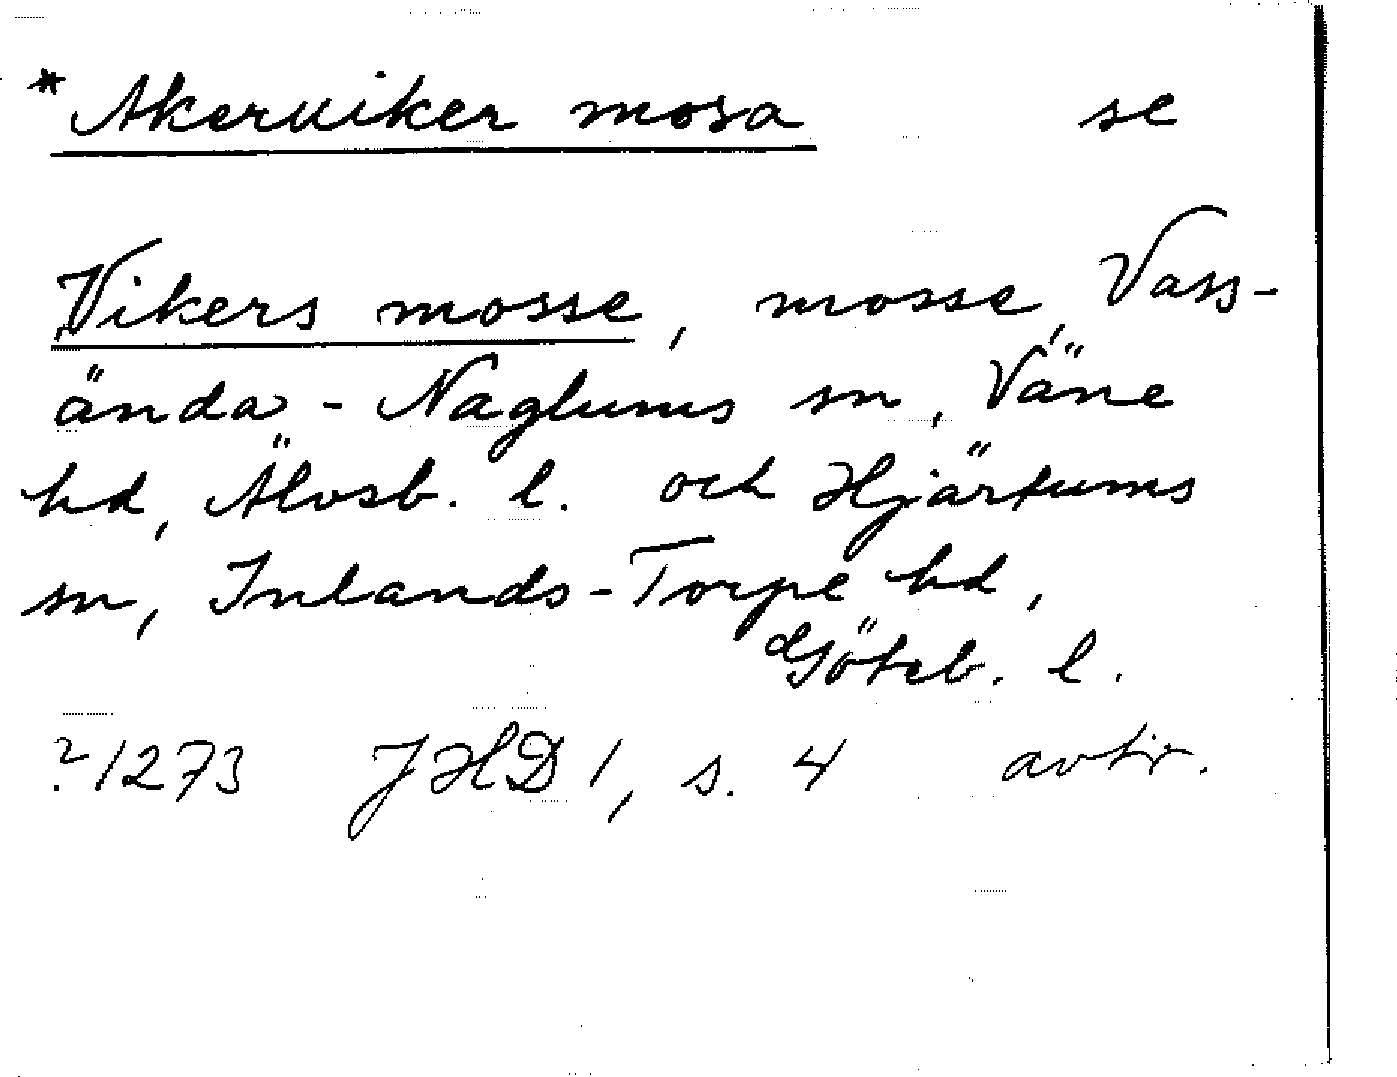 * Akeruiker mosa se
Vikers mosse, mosse, Vass-
ända - Naglums sn, Väne
hd, Älvsb. l. och Hjärtums
sn, Inlands-Torpe hd,
Göteb. l.
?1273 JHD 1, s. 4 avtr.